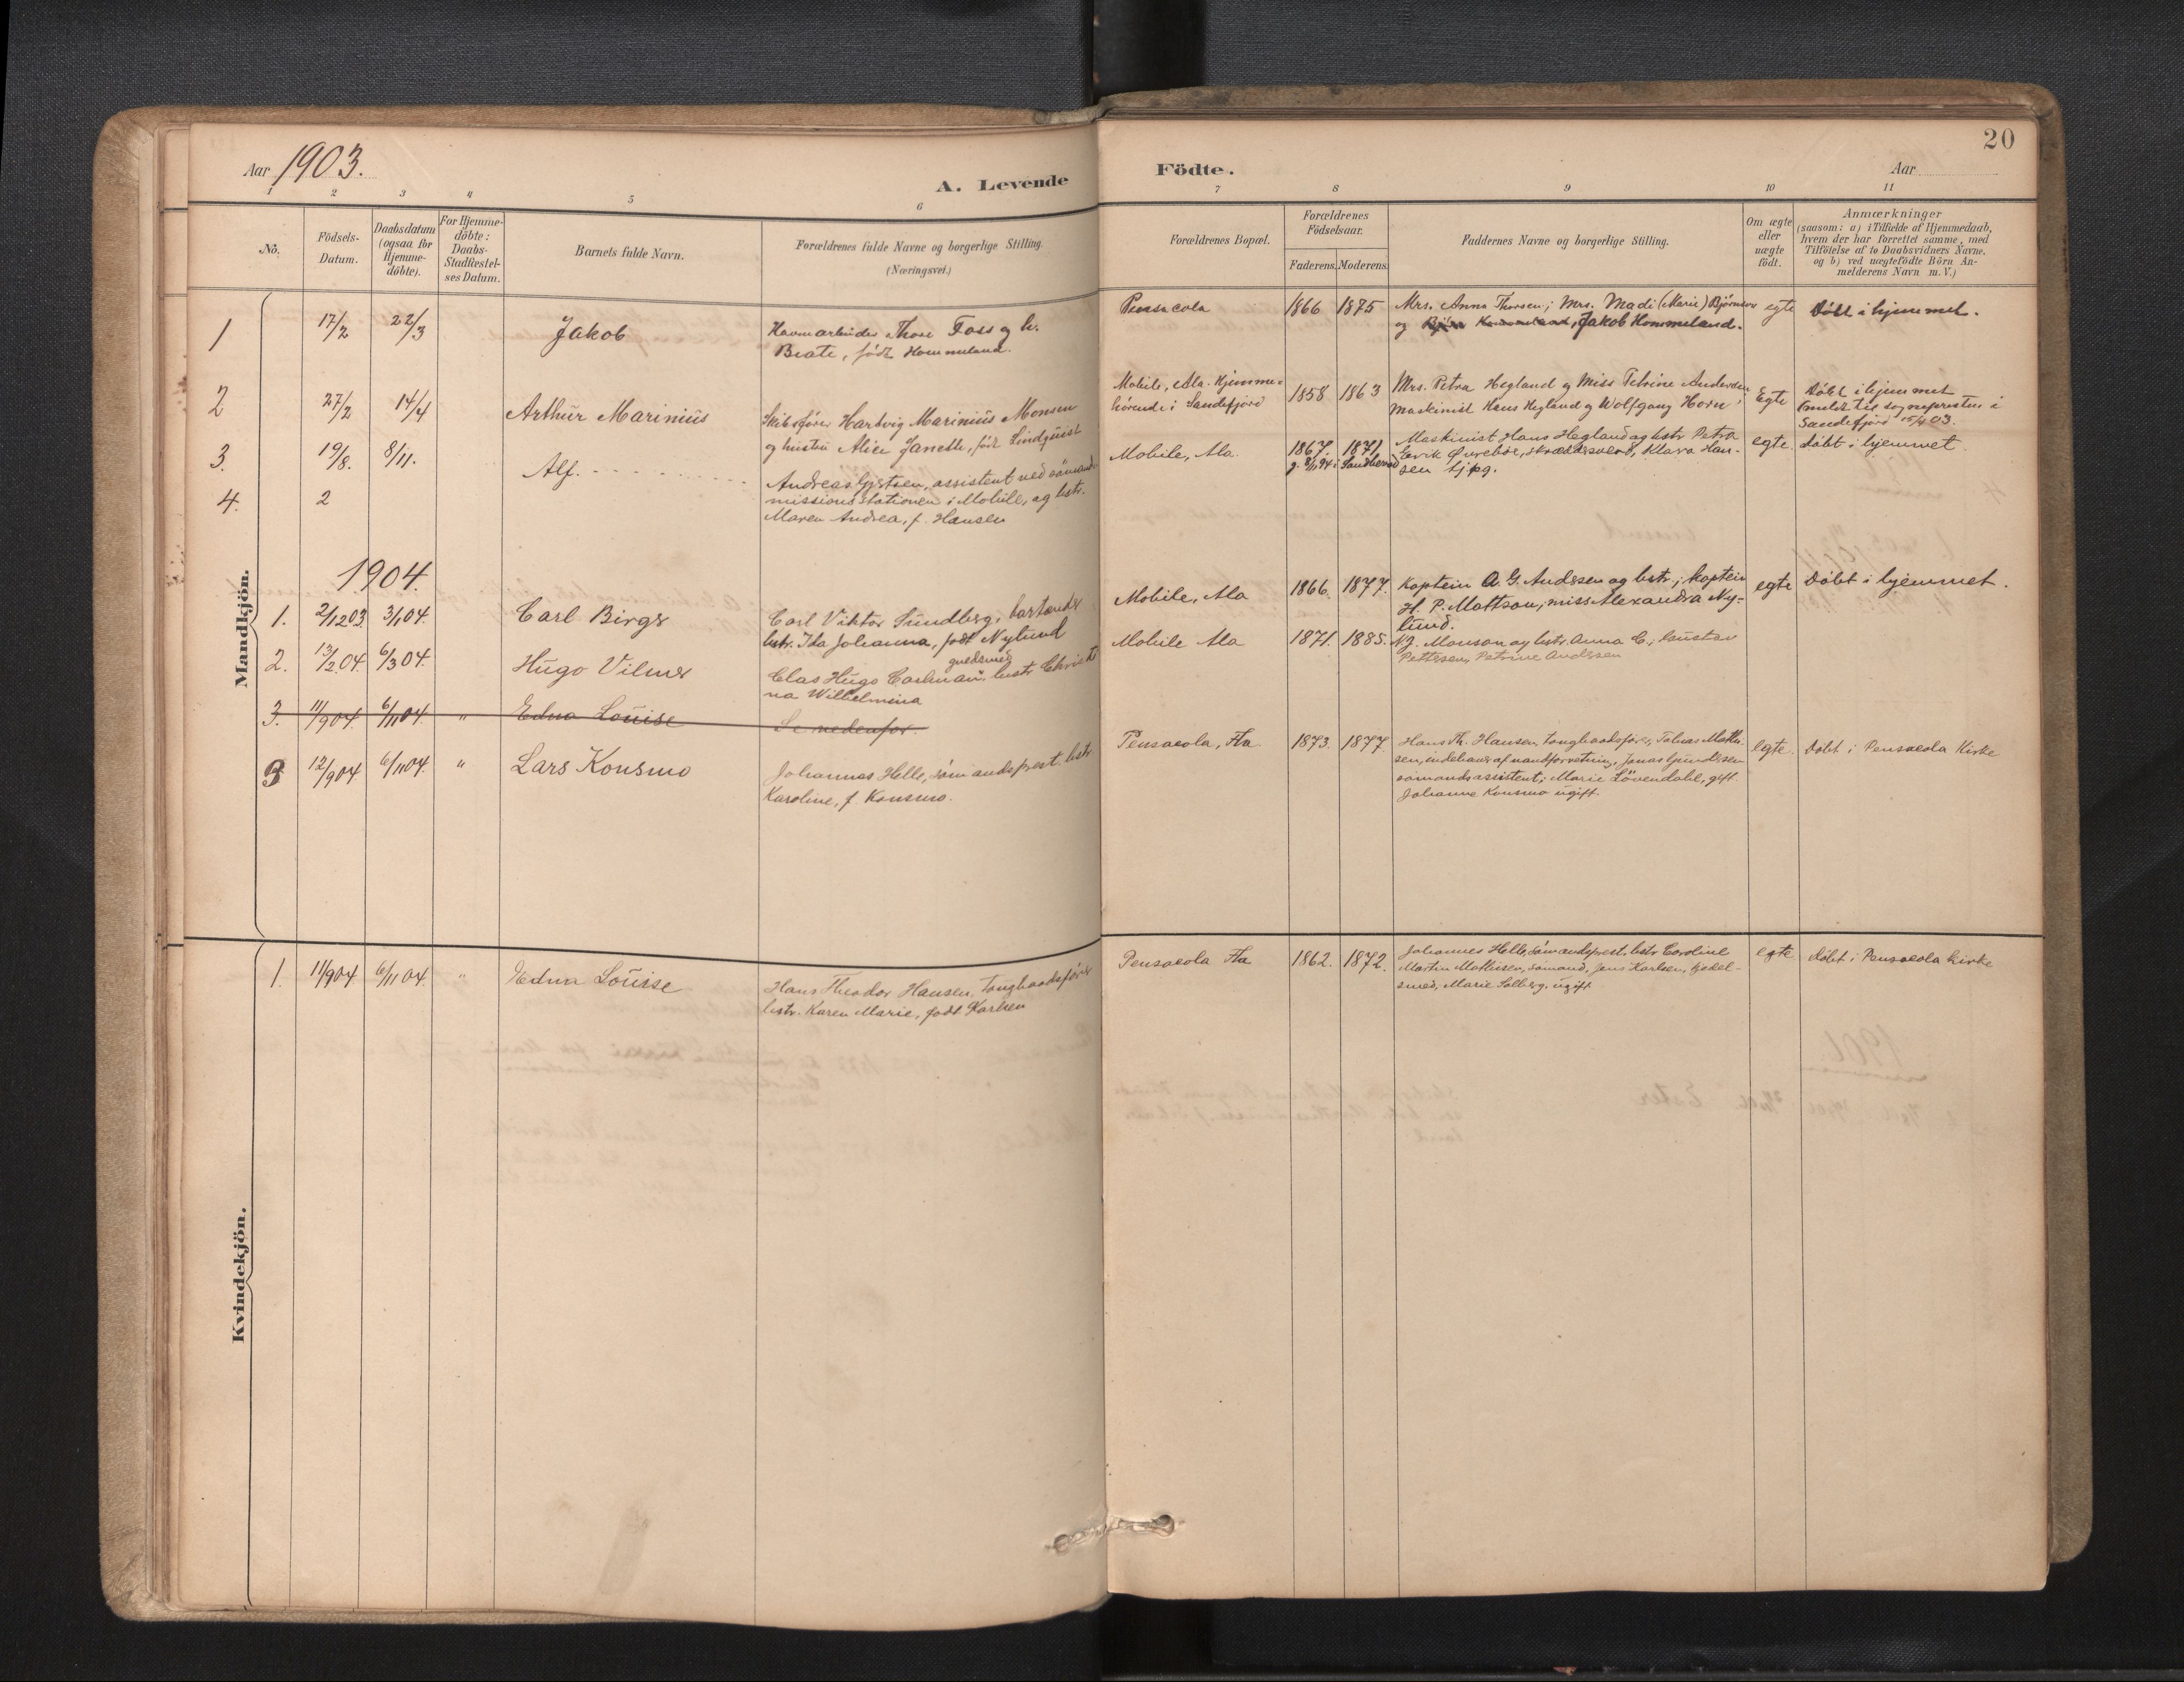 Aar 1903.
A. Levende
Födte.
Aar
20
1 2 3 4 5 6 7 8 9 10 11
No.
Födsels-Datum.
Daabsdatum (ogsaa for Hjemme-döbte).
For Hjemme-döbte: Daabs-Stadfæstel-ses Datum.
Barnets fulde Navn.
Forældrenes fulde Navne og borgerlige Stilling.
(Næringsvei.)
Forældrenes Bopæl.
Forældrenes Födselsaar.
Faderens. Moderens.
Faddernes Navne og borgerlige Stilling.
Om ægte eller uægte födt.
Anmærkninger
(saasom: a) i Tilfælde af Hjemmedaab,
hvem der har forrettet samme, med
Tilföielse af to Daabsvidners Navne,
og b) ved uægtefödte Börn An-
melderens Navn m. V.)
Mandkjön.
1 17/2 22/3 Jakob
Havnearbeider Thore Foss og h.
Beate, født Hommeland.
Pensacola 1866 1875
Mrs. Anna Thorsen; Mrs. Madi (Marie) Bjørnsen
og Jakob Hommeland.
egte Døbt i hjemmet.
2 27/2 14/4 Arthur Marinius
Skibsfører Hartvig Marinius Monsen
og hustru Alice Janette, født Lindquist
Mobile, Ala. Hjemme-
hørende i Sandefjord
1858 1863
Mrs. Petra Hegland og Miss Petrine Andersen
Maskinist Hans Hegland og Wolfgang Horn
Egte
Døbt i hjemmet
Anmeldt til sognepresten i
Sandefjord 15/4 03.
3. 19/8. 8/11. Alf.
Andreas Gjertsen, assistent ved sömands-
missions stationen i Mobile, og hstr.
Maren Andrea, f. Hansen
Mobile, Ala. 1867. 1871
Maskinist Hans Hegland og hstr Petra
Erik Øvrebøe, skræddersvend, Klara Han-
sen tjpg.
egte. döbt i hjemmet
4. 2
1904.
1. 2/12 03. 3/1 04. Carl Birger
Carl Viktor Sundberg, bartender
hstr. Ida Johanna, født Nylund
Mobile, Ala 1866. 1877.
Kaptein A. G. Anderson og hstr; kaptein
H. P. Mattson; miss Alexandra Ny-
lund.
egte Döbt i hjemmet.
2. 13/2 04. 6/3 04. Hugo Vilmer
guldsmed
Clas Hugo Carlman, hustr Christi
na Wilhelmina
Mobile Ala 1871. 1885.
N. J. Monson og hstr. Anna C.; Gustav
Pettersen, Petrine Andersen
3. 11/9 04. 6/11 04. " Edna Louise Se nedenfor.
3 12/9 04 6/11 04. " Lars Konsmo
Johannes Helle, sömandsprest. hstr
Karoline, f. Konsmo.
Pensacola, Fla. 1873. 1877.
Hans Th. Hansen, tougbaadsfører, Tobias Mathi-
sen, indehaver af vandforretning, Jonas Gundersen
sömandsassistent; Marie Lövendahl, gift.
Johanne Konsmo ugift.
egte. döbt i Pensacola Kirke
Kvindekjön.
1. 11/9 04 6/11 04. " Edna Louise
Hans Theodor Hansen, tougbaadsfører
hstr. Karen Marie, født Karlsen
Pensacola Fla 1862. 1872.
Johannes Helle, sömandsprest. hstr Caroline
Martin Mathisen, sömand, Jens Karlsen, kjedel-
smed, Marie Solberg, ugift
egte döbt i Pensacola kirke